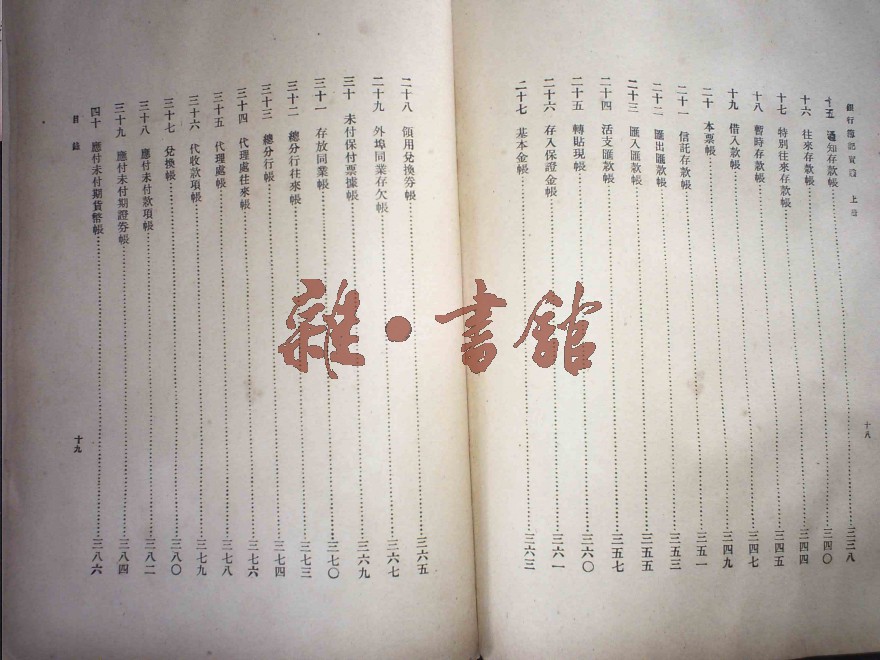 銀行簿記實踐 上冊
十五 通知存款帳 三三八
十六 往來存款帳 三四〇
十七 特別往來存款帳 三四四
十八 暫時存款帳 三四五
十九 借入款帳 三四七
二十 本票帳 三四九
二十一 信託存款帳 三五一
二十二 匯出匯款帳 三五三
二十三 匯入匯款帳 三五五
二十四 活支匯款帳 三五七
二十五 轉貼現帳 三六〇
二十六 存入保證金帳 三六一
二十七 基本金帳 三六三
十八
二十八 領用兌換券帳 三六五
二十九 外埠同業存欠帳 三六七
三十 未付保付票據帳 三六九
三十一 存放同業帳 三七〇
三十二 總分行往來帳 三七三
三十三 總分行帳 三七四
三十四 代理處往來帳 三七六
三十五 代理處帳 三七八
三十六 代收款項帳 三七九
三十七 兌換帳 三八〇
三十八 應付未付款項帳 三八二
三十九 應付未付期證券帳 三八四
四十 應付未付期貨幣帳 三八六
目錄
十九
雜·書館